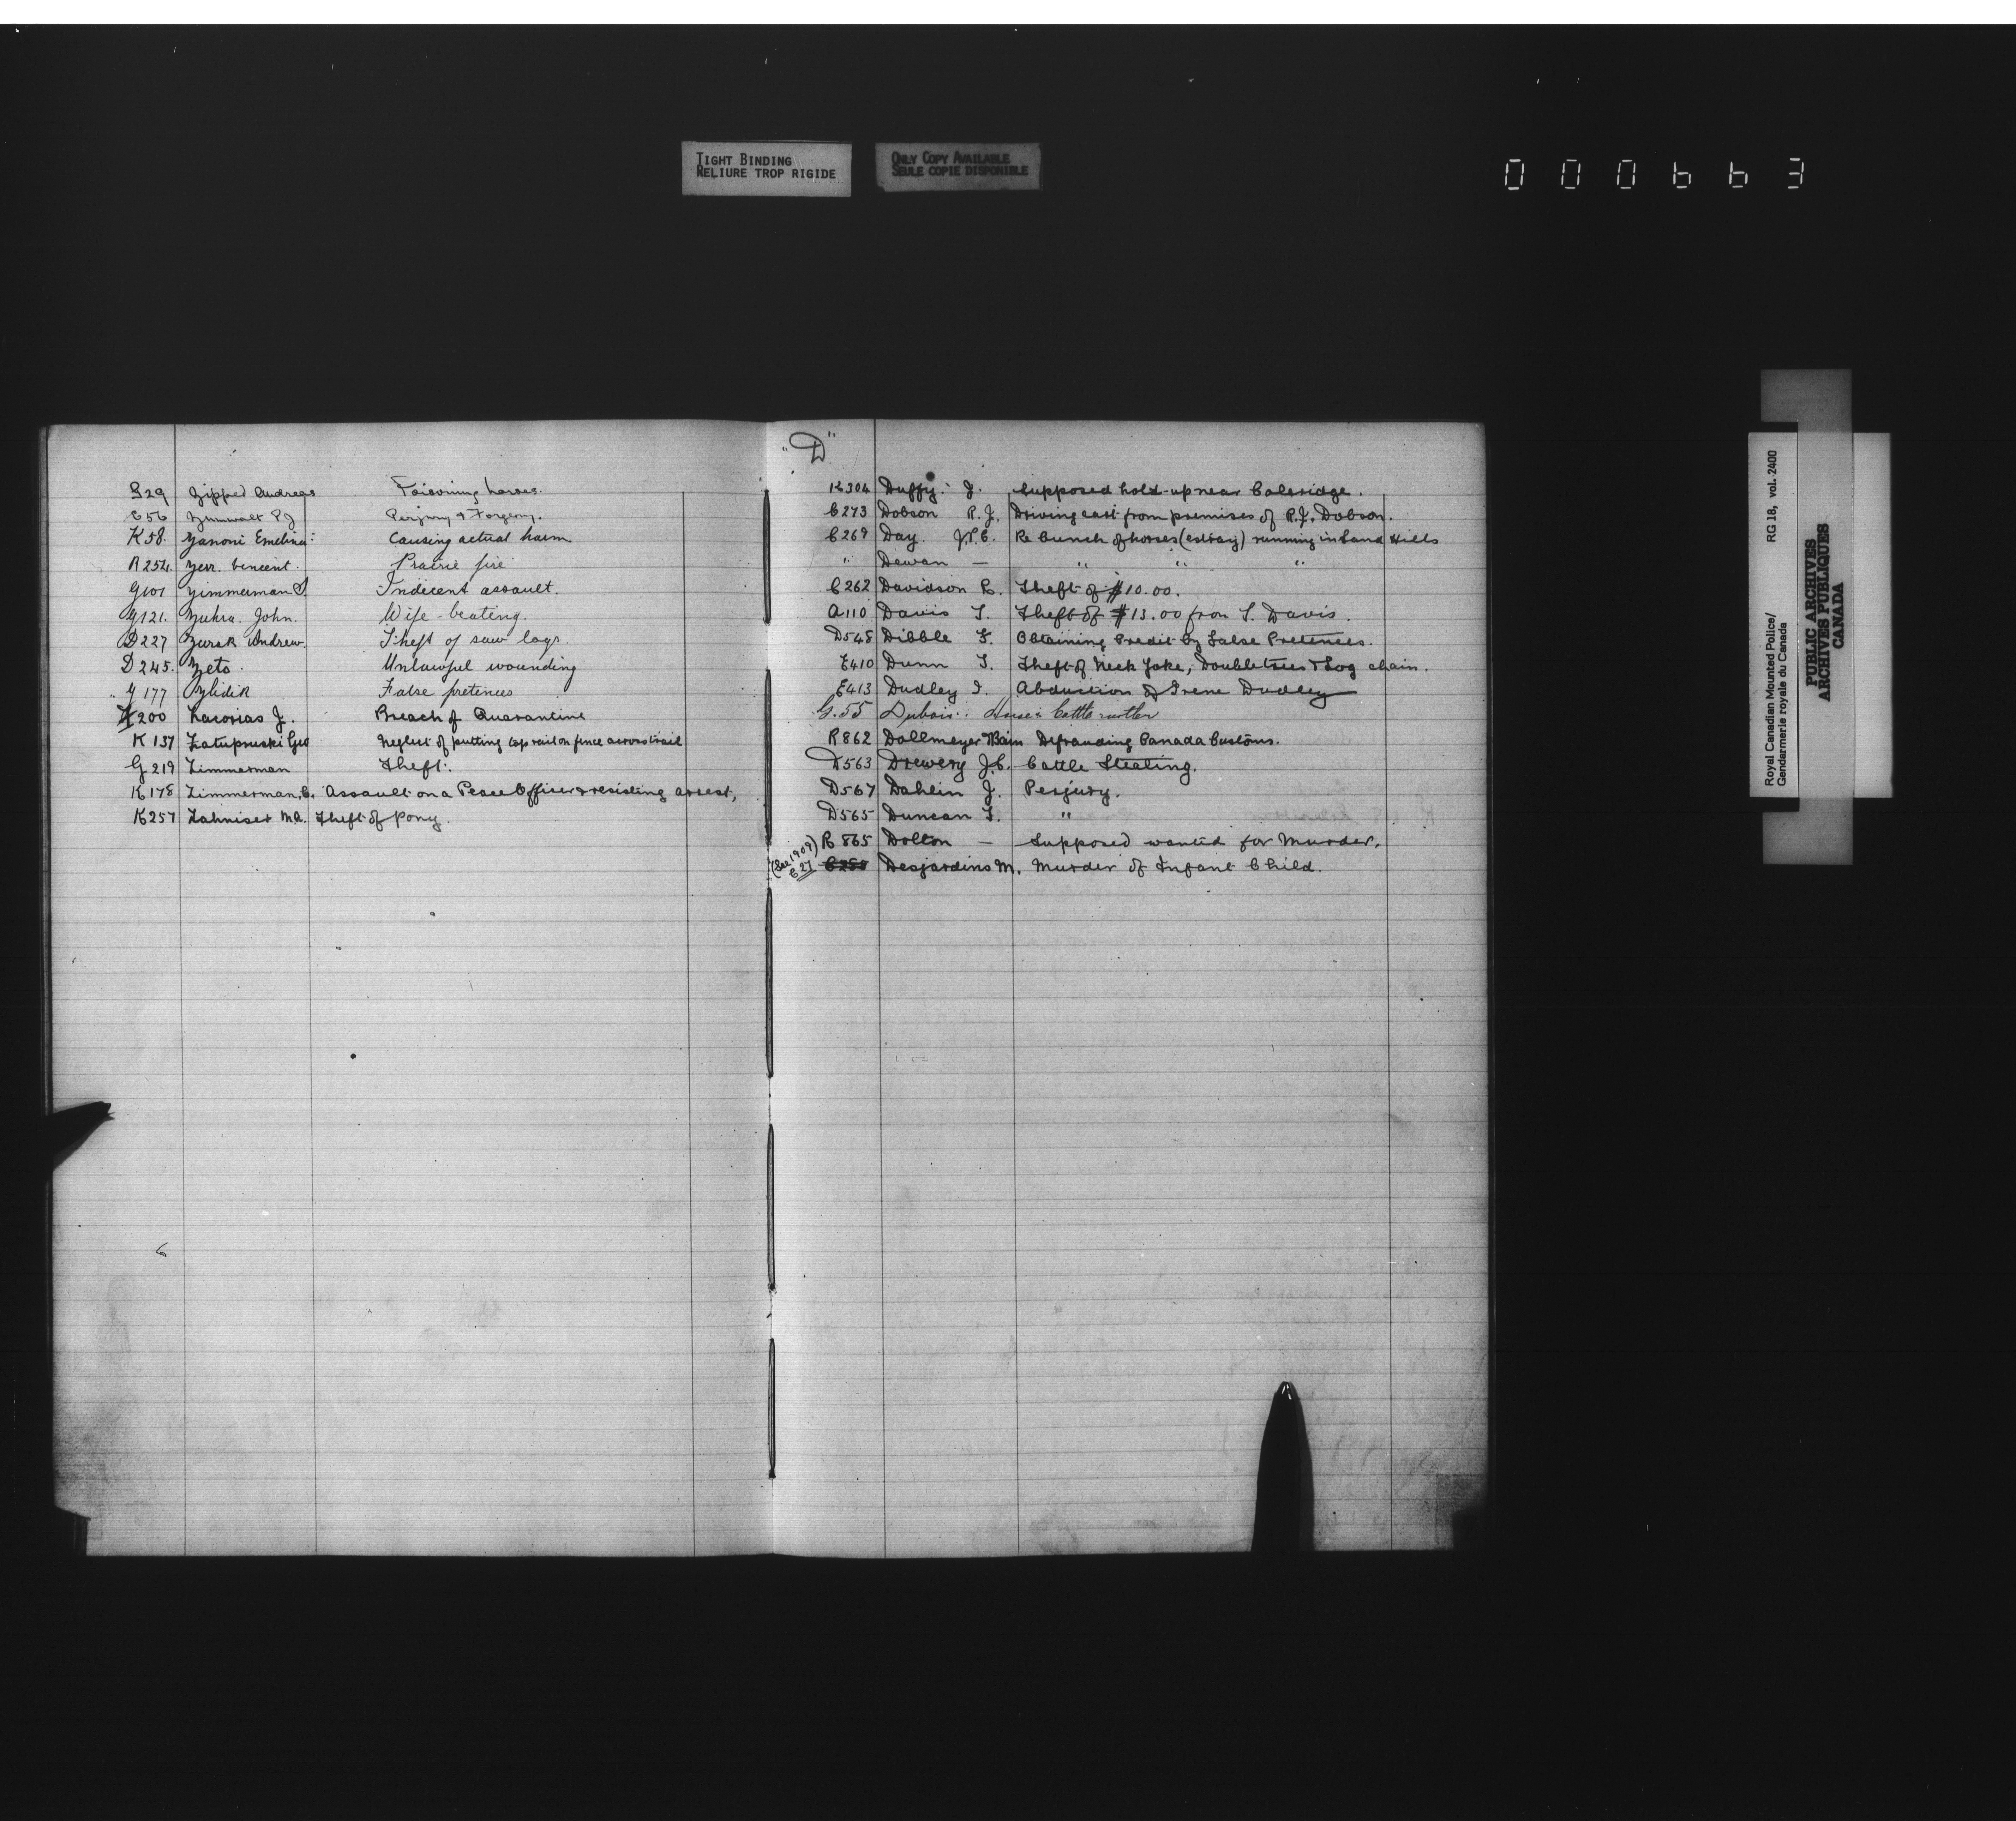 TIGHT BINDING
RELIURE TROP RIGIDE
ONLY COPY AVAILABLE
SEULE COPIE DISPONIBLE
000663
G29 Zipped Andreas Poisoning horses.
C56 Zumwalt P J Perjury & Forgery.
K58. Zanoni Emelina: Causing actual harm
R254. Zerr. Vincent. Prairie fire
G101 Zimmerman S Indecent assault.
G121. Zuhra. John. Wife-beating.
D227 Zurak Andrew. Theft of saw logs.
D245. Zeto. Unlawful wounding
G 177 Zlidik False pretences
K200 Zacorias J. Breach of Quarantine
K 137 Zatupruski Geo Neglect of putting top rail on fence across trail
G 219 Zimmerman Theft.
K178 Zimmerman, C. Assault on a Peace Officer & resisting arrest,
K257 Zahniser M.A. Theft of pony.
"D"
K304 Duffy. J. Supposed hold-up near Coleridge.
C273 Dobson R.J. Driving cattle from premises of R.J. Dobson.
C269 Day. J.P.C. Re bunch of horses (estray) running in Sand Hills
" Dewan — " " "
C262 Davidson R. Theft of $10.00.
A110 Davis T. Theft of $13.00 from T. Davis.
D548 Dibble F. Obtaining Credit by False Pretences.
E410 Dunn T. Theft of Neck Yoke, Doubletrees & Log chain.
E413 Dudley I. Abduction of Irene Dudley
G.55 Dubois: Horse & Cattle rustler
R862 Dollmeyer & Bain Defrauding Canada Customs.
D563 Drewery J.C. Cattle Stealing.
D567 Dahlin J. Perjury.
D565 Duncan T. "
R865 Dolton — Supposed wanted for Murder.
(See 1909) C27 C258 Desjardins M. Murder of Infant Child.
Royal Canadian Mounted Police/ RG 18, vol. 2400
Gendarmerie royale du Canada
PUBLIC ARCHIVES
ARCHIVES PUBLIQUES
CANADA